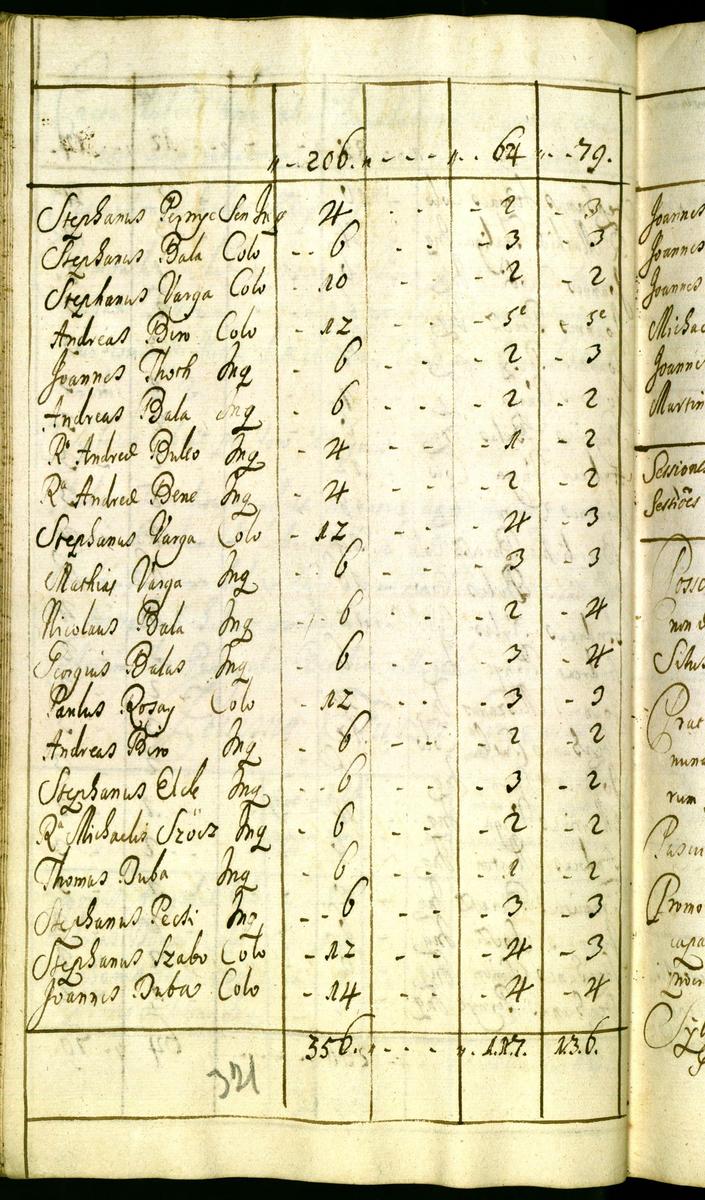 " - 206. " - - - " - 64 " - 79.
Stephanus Sen Inq 4 - - - 2 - 3
Stephanus Bala Colo - - 6 - - - 3 - 3
Stephanus Varga Colo - 10 - - - 2 - 2
Andreas Biro Colo - 12 - - - 5e 5e
Joannes Thoth Inq - 6 - - - 2 - 3
Andreas Bala Inq - 6 - - - 2 - 2
Ra Andreæ Inq - 4 - - - 1 - 2
Ra Andreæ Bene Inq - 4 - - - 2 - 2
Stephanus Varga Colo - 12 - - - 4 - 3
Mathias Varga Inq - 6 - - - 3 - 3
Nicolaus Bala Inq - 6 - - - 2 - 4
Georgius Balas Inq - 6 - - - 3 - 4
Paulus Rosay Colo - 12 - - - 3 - 3
Andreas Biro Inq - 6 - - - 2 - 2
Stephanus Inq - 6 - - - 3 - 2
Ra Michaelis Szöcz Inq - 6 - - - 2 - 2
Thomas Duba Inq - 6 - - - 1 - 2
Stephanus Pecsi Inq - - 6 - - - 3 - 3
Stephanus Szabo Colo - 12 - - - 4 - 3
Joannes Duba Colo - 14 - - - 4 - 4
356. " - - - " - 117. 136.
321
Joannes
Joannes
Joannes
Michae
Joannes
Martin
Sessiones
Sessiões